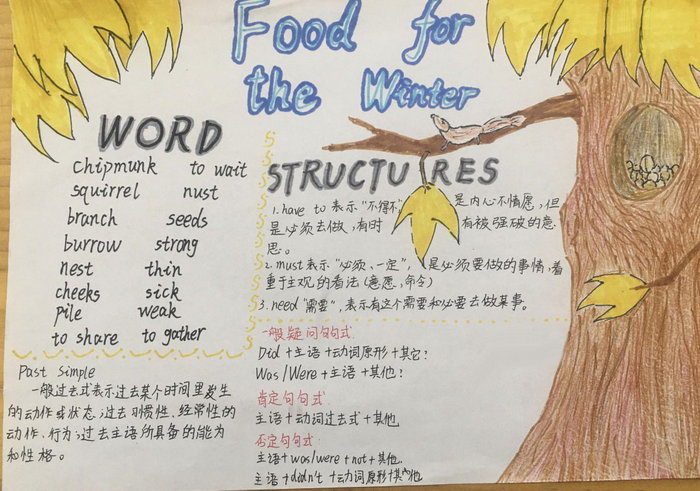 Food for
the Winter
WORD
chipmunk to wait
squirrel nust
branch seeds
burrow strong
nest thin
cheeks sick
pile weak
to share to gather
STRUCTURES
1. have to 表示"不得不", 是内心不情愿,但
是必须去做,有时 有被强破的意
思。
2. must 表示"必须、一定", 是必须要做的事情,着
重于主观的看法(意愿,命令)
3. need "需要",表示有这个需要和必要去做某事。
Past Simple
一般过去式表示过去某个时间里发生
的动作或状态;过去习惯性、经常性的
动作、行为;过去主语所具备的能为
和性格。
一般疑问句句式
Did + 主语 + 动词原形 + 其它?
Was/Were + 主语 + 其他!
肯定句句式
主语 + 动词过去式 + 其他
否定句句式
主语 + was/were + not + 其他.
主语 + didn't + 动词原形 + 其他